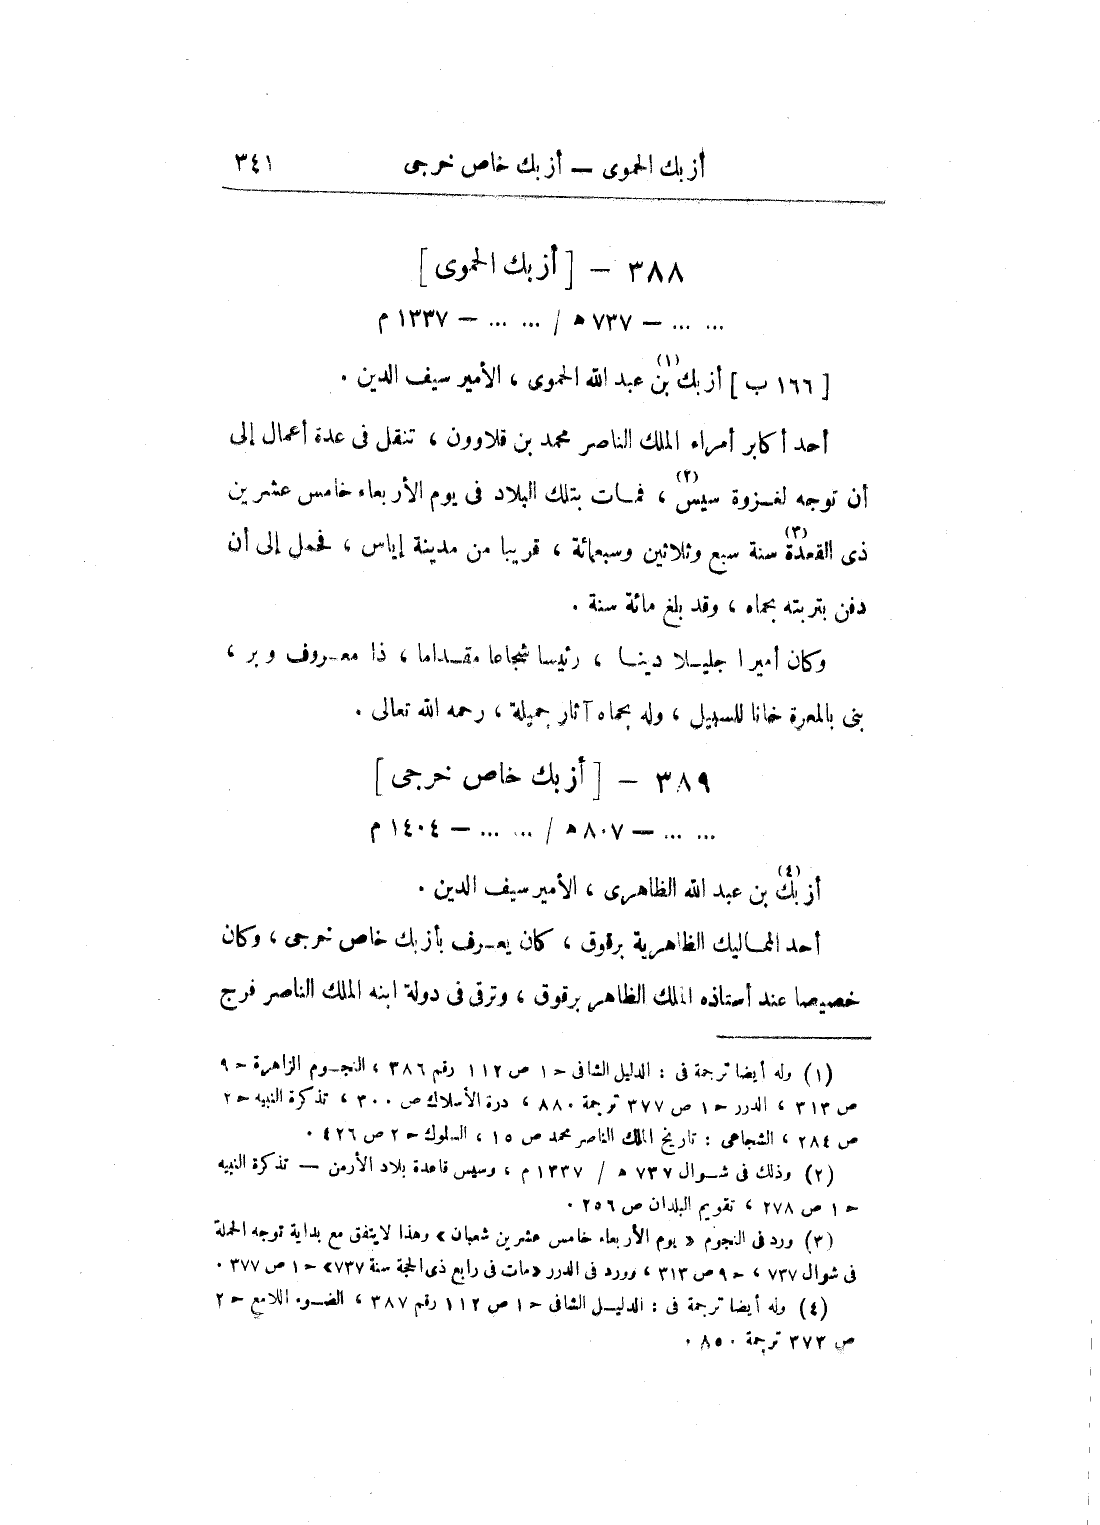 أزبك الحموى — أزبك خاص خرجى ٣٤١
٣٨٨ — [ أزبك الحموى ]
... ... — ٧٣٧ ه / ... ... — ١٣٣٧ م
[ ١٦٦ ب ] أزبك(١) بن عبد الله الحموى ، الأمير سيف الدين .
أحد أكابر أمراء الملك الناصر محمد بن قلاوون ، تنقل فى عدة أعمال إلى
أن توجه لغزوة سيس(٢) ، فمات بتلك البلاد فى يوم الأربعاء خامس عشرين
ذى القعدة(٣) سنة سبع وثلاثين وسبعمائة ، قريبا من مدينة إياس ، فحمل إلى أن
دفن بتربته بحماه ، وقد بلغ مائة سنة .
وكان أميرا جليلا دينا ، رئيسا شجاعا مقداما ، ذا معروف وبر ،
بنى بالمعرة خانا للسبيل ، وله بحماه آثار جميلة ، رحمه الله تعالى .
٣٨٩ — [ أزبك خاص خرجى ]
... ... — ٨٠٧ ه / ... ... — ١٤٠٤ م
أزبك(٤) بن عبد الله الظاهرى ، الأمير سيف الدين .
أحد المماليك الظاهرية برقوق ، كان يعرف بأزبك خاص خرجى ، وكان
خصيصا عند أستاذه الملك الظاهر برقوق ، وترقى فى دولة ابنه الملك الناصر فرج
(١) وله أيضا ترجمة فى : الدليل الشافى ح ١ ص ١١٢ رقم ٣٨٦ ، النجوم الزاهرة ح ٩
ص ٣١٣ ، الدرر ح ١ ص ٣٧٧ ترجمة ٨٨٠ ، درة الأسلاك ص ٣٠٠ ، تذكرة النبيه ح ٢
ص ٢٨٤ ، الشجاعى : تاريخ الملك الناصر محمد ص ١٥ ، السلوك ح ٢ ص ٤٢٦ .
(٢) وذلك فى شوال ٧٣٧ ه / ١٣٣٧ م ، وسيس قاعدة بلاد الأرمن — تذكرة النبيه
ح ١ ص ٢٧٨ ، تقويم البلدان ص ٢٥٦ .
(٣) ورد فى النجوم « يوم الأربعاء خامس عشرين شعبان » وهذا لايتفق مع بداية توجه الحملة
فى شوال ٧٣٧ ، ح ٩ ص ٣١٣ ، وورد فى الدرر « مات فى رابع ذى الحجة سنة ٧٣٧ » ح ١ ص ٣٧٧ .
(٤) وله أيضا ترجمة فى : الدليل الشافى ح ١ ص ١١٢ رقم ٣٨٧ ، الضوء اللامع ح ٢
ص ٢٧٣ ترجمة ٨٥٠ .